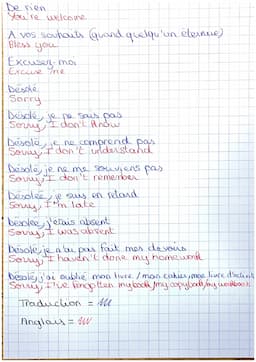 De rien
You're welcome
A vos souhaits (quand quelqu'un éternue)
Bless you
Excusez-moi
Excuse me
Désolé
Sorry
Désolé, je ne sais pas
Sorry, I don't know
Désolé, je ne comprend pas
Sorry, I don't understand
Désolé, je ne me souviens pas
Sorry, I don't remember
Désolée, je suis en retard
Sorry, I'm late
Désolée, j'étais absent
Sorry, I was absent
Désolé, je n'ai pas fait mes devoirs
Sorry, I haven't done my homework
Désolé, j'ai oublié mon livre / mon cahier, mon livre
Sorry, I've forgotten my book/my copybook/my workbook
Traduction =
Anglais =